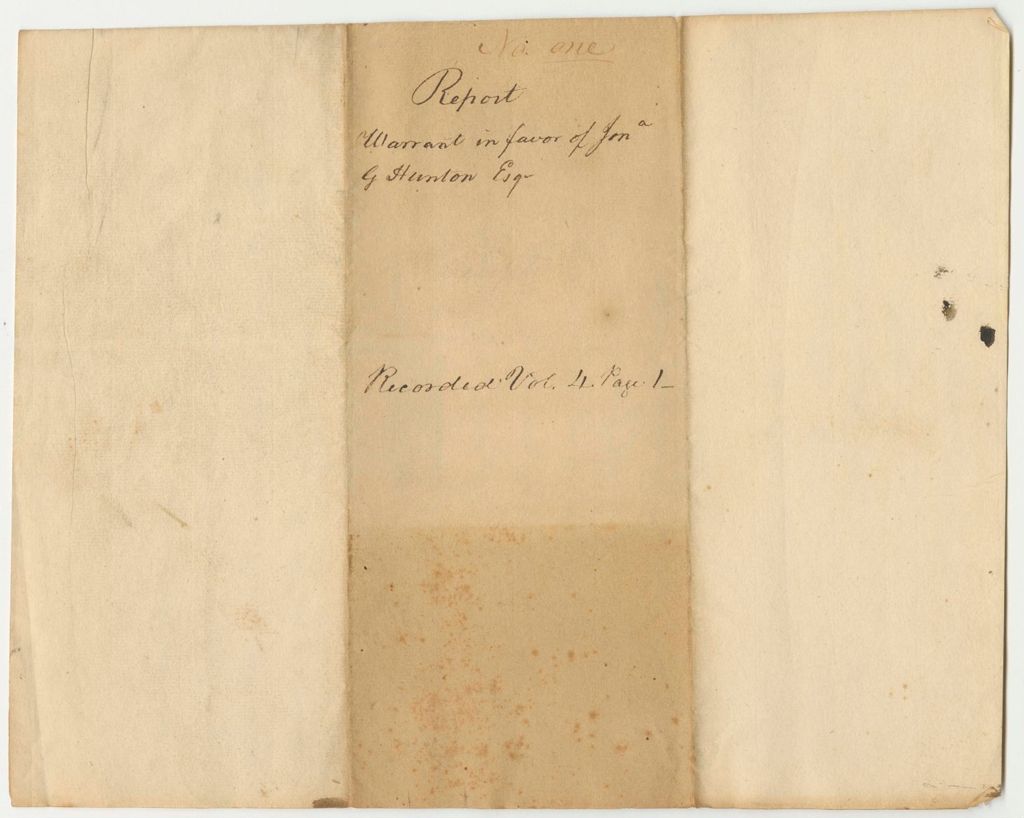 No. one
Report
Warrant in favor of Jonª
G Hunton Esqr
Recorded Vol. 4. Page. 1_